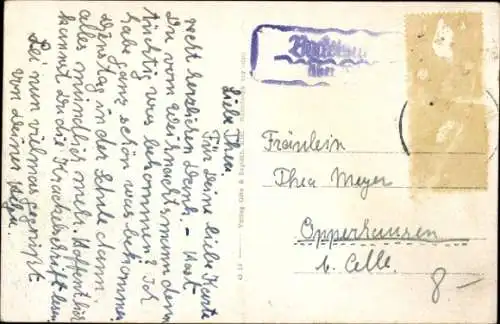 Liebe Thea
Für Deine liebe Karte
recht herzlichen Dank. - Hast
Du vom Weihnachtsmann denn
tüchtig was bekommen? Ich
habe ganz schön was bekommen
Dienstag in der Schule dann
alles mündlich mehr. Hoffentlich
kannst Du die Krackelschrift lesen.
Sei nun vielmals gegrüßt
von Deiner
über
Fräulein
Thea Meyer
Oppershausen
b. Celle.
8-